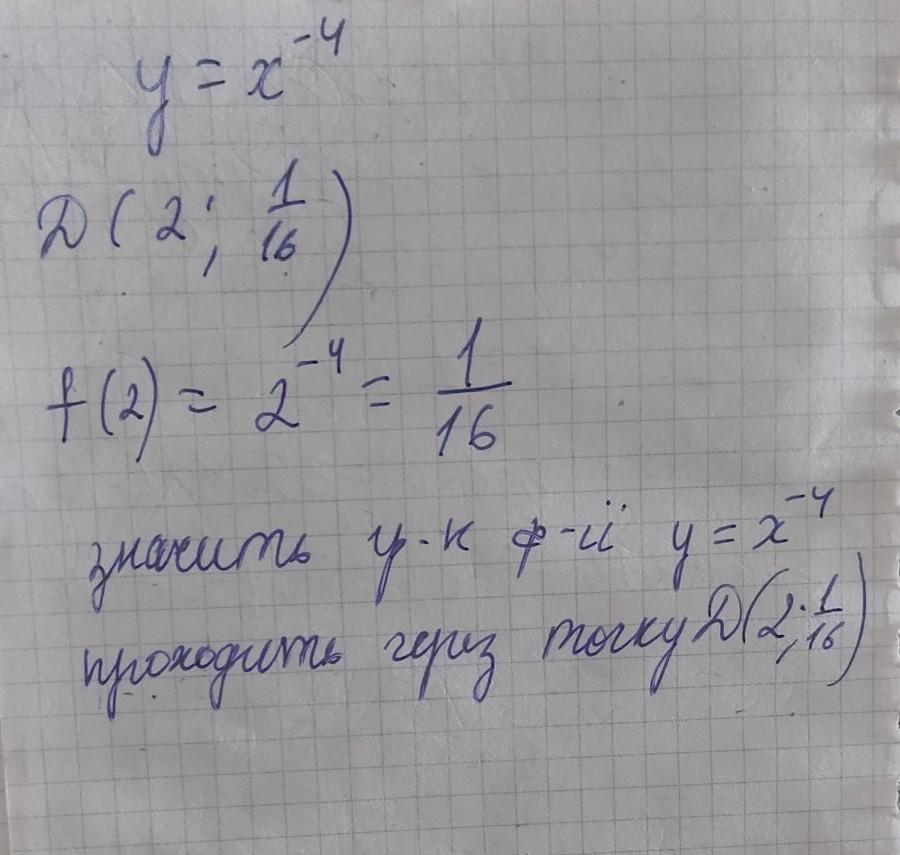 y = x⁻⁴
D ( 2 ; 1/16 )
f (2) = 2⁻⁴ = 1/16
значить гр-к ф-ії y = x⁻⁴
проходить через точку D(2; 1/16)